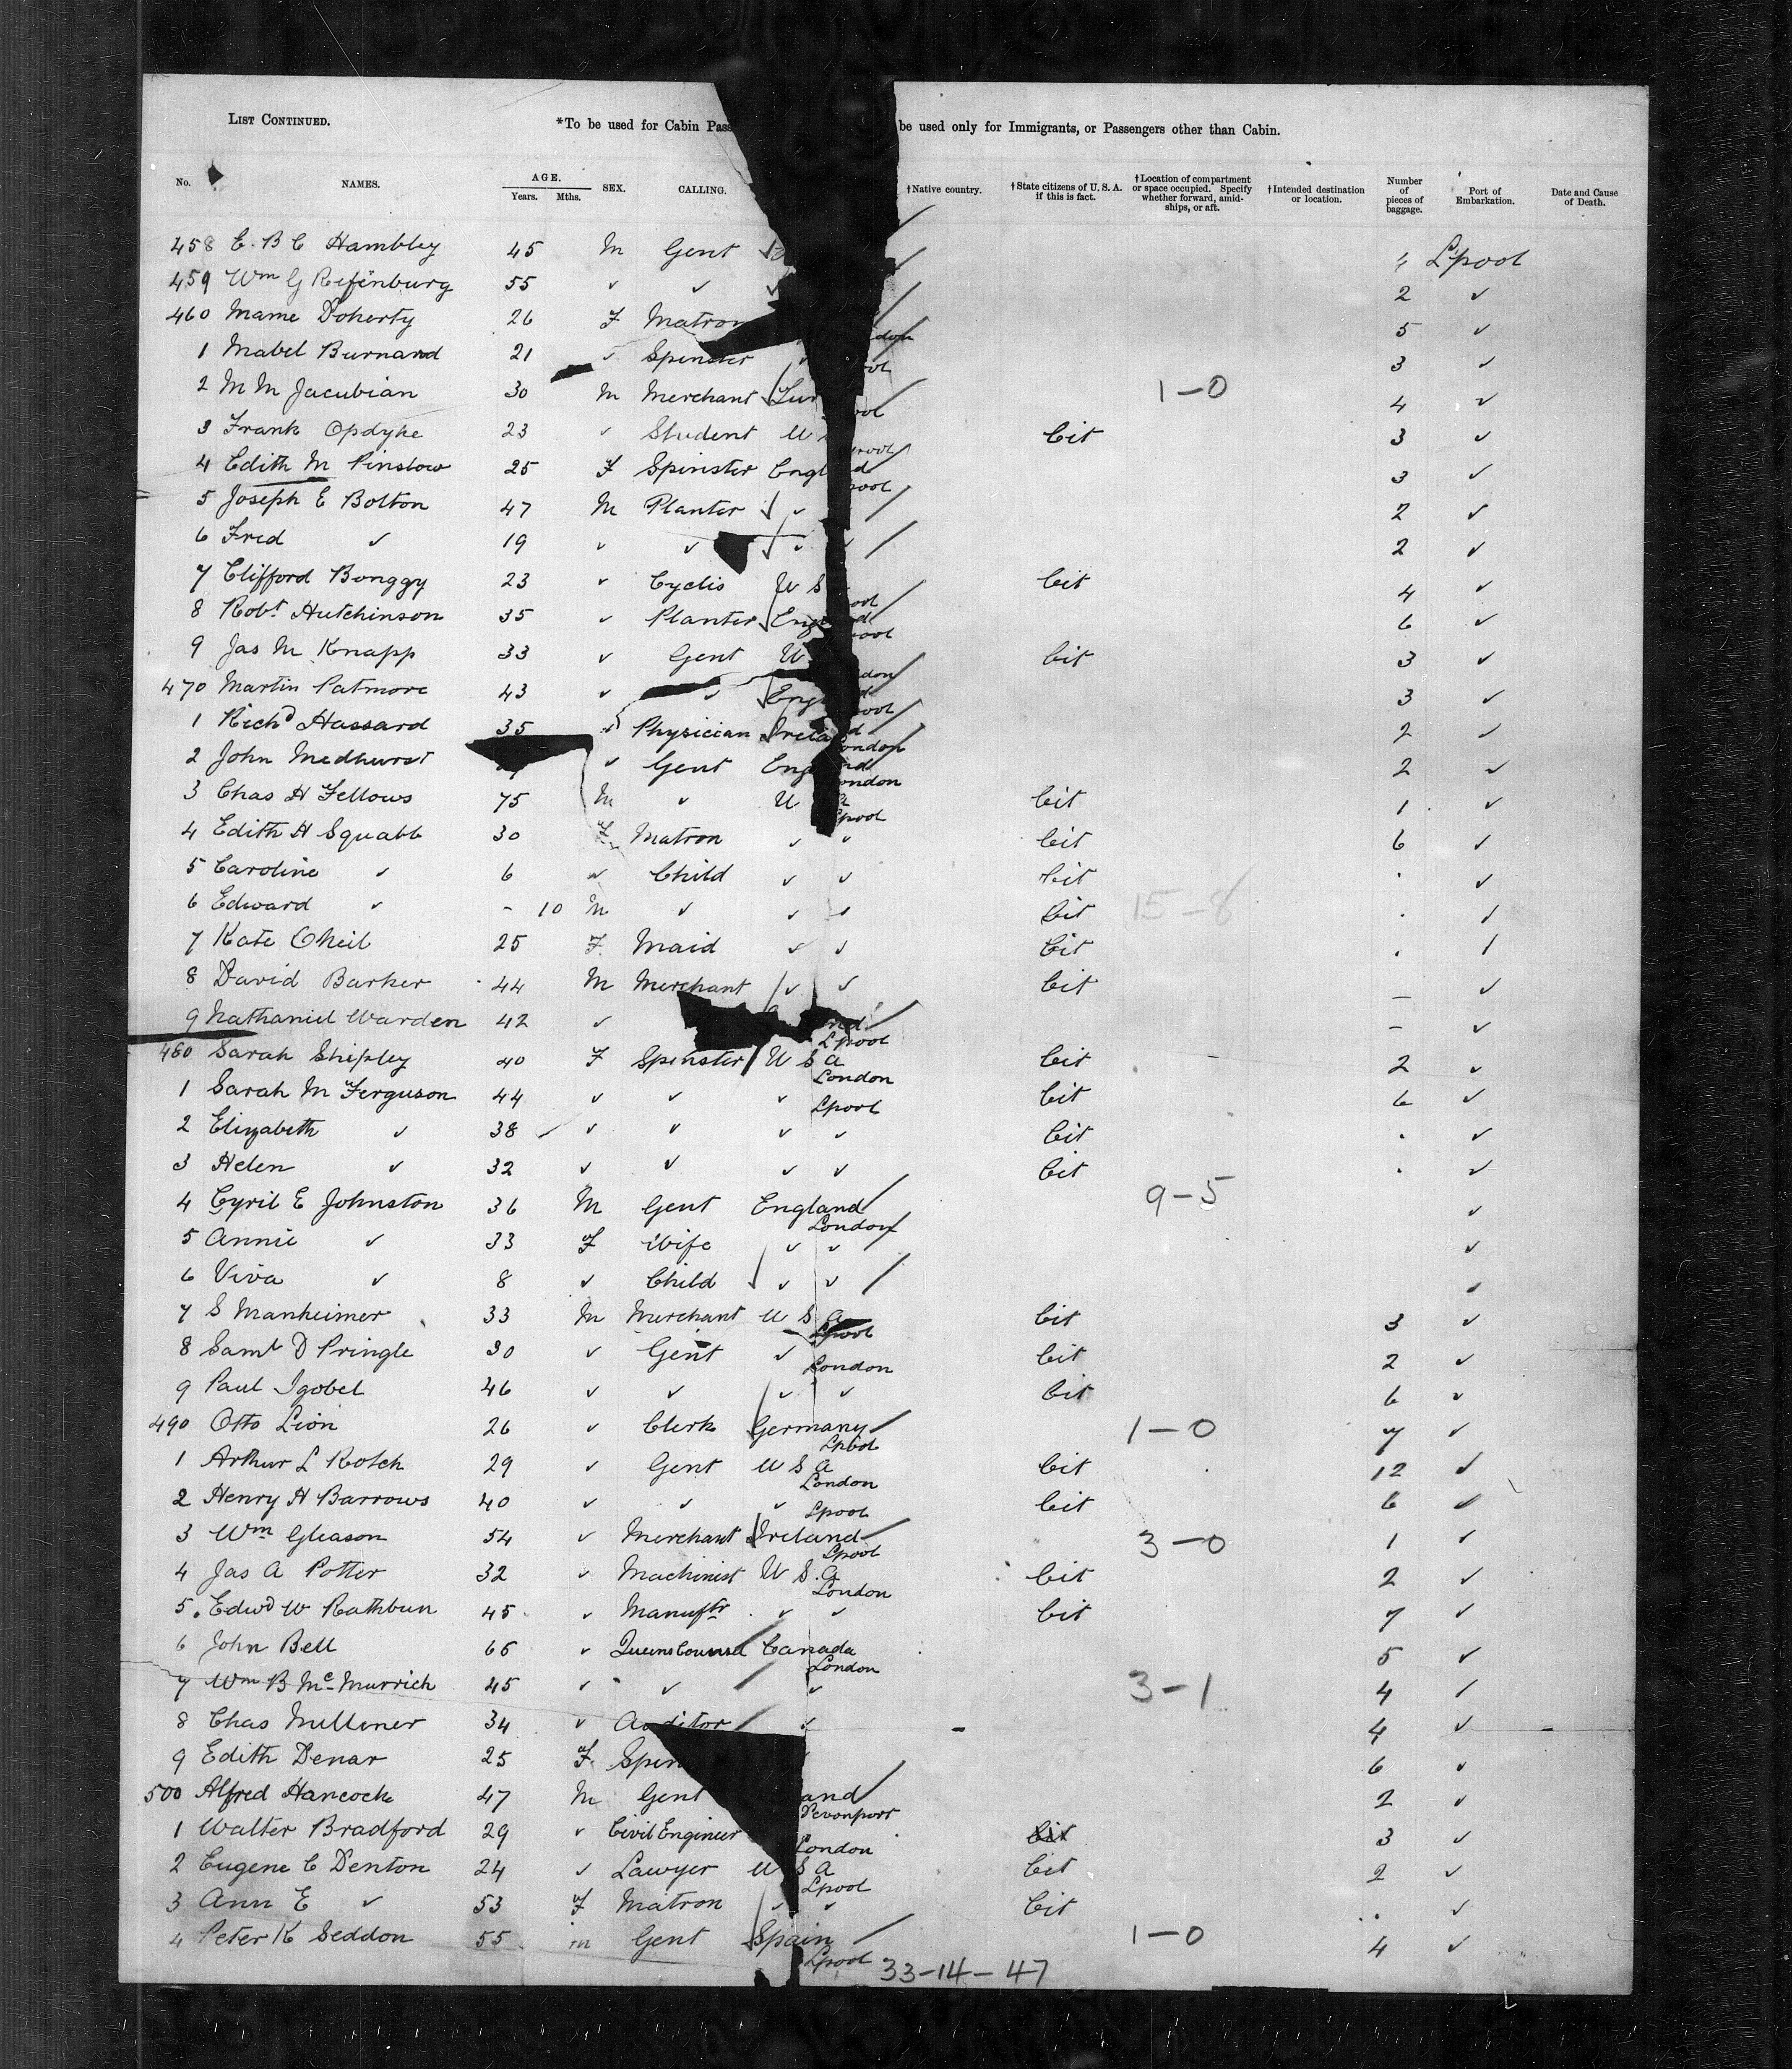 LIST CONTINUED. *To be used for Cabin Pass be used only for Immigrants, or Passengers other than Cabin.
No. NAMES. AGE. Years. Mths. SEX. CALLING. †Native country. †State citizens of U. S. A. if this is fact. †Location of compartment or space occupied. Specify whether forward, amidships, or aft. †Intended destination or location. Number of pieces of baggage. Port of Embarkation. Date and Cause of Death.
458 E. B C Hambley 45 M Gent 4 Lpool
459 Wm G Refenburg 55 ✓ ✓ ✓ 2 ✓
460 Mame Doherty 26 F Matron 5 ✓
1 Mabel Burnand 21 ✓ Spinster ✓ 3 ✓
2 M M Jacubian 30 M Merchant 1-0 4 ✓
3 Frank Opdyke 23 ✓ Student U S Cit 3 ✓
4 Edith M Pinslow 25 F Spinster Engl d 3 ✓
5 Joseph E Bolton 47 M Planter ✓ 2 ✓
6 Fred ✓ 19 ✓ ✓ ✓ ✓ 2 ✓
7 Clifford Bonggy 23 ✓ Cyclis U S Cit 4 ✓
8 Robt Hutchinson 35 ✓ Planter Eng d 6 ✓
9 Jas M Knapp 33 ✓ Gent U Cit 3 ✓
470 Martin Patmore 43 ✓ ✓ Eng d 3 ✓
1 Richd Hassard 35 ✓ Physician Irela d 2 ✓
London
2 John Medhurst ✓ Gent Eng nd 2 ✓
London
3 Chas H Fellows 75 M ✓ U a Cit 1 ✓
Lpool
4 Edith H Squabb 30 F Matron ✓ ✓ Cit 6 ✓
5 Caroline ✓ 6 ✓ Child ✓ ✓ Cit . ✓
6 Edward ✓ - 10 M ✓ ✓ ✓ Cit 15-8 . ✓
7 Kate Oneil 25 F Maid ✓ ✓ Cit . ✓
8 David Barker 44 M Merchant ✓ ✓ Cit - ✓
9 Nathaniel Warden 42 ✓ nd - ✓
Lpool
480 Sarah Shipley 40 F Spinster U S A Cit 2 ✓
London
1 Sarah M Ferguson 44 ✓ ✓ ✓ Lpool Cit 6 ✓
2 Elizabeth ✓ 38 ✓ ✓ ✓ ✓ Cit . ✓
3 Helen ✓ 32 ✓ ✓ ✓ ✓ Cit . ✓
4 Cyril E Johnston 36 M Gent England 9-5 ✓
London
5 Annie ✓ 33 F Wife ✓ ✓ ✓
6 Viva ✓ 8 ✓ Child ✓ ✓
7 S Manheimer 33 M Merchant U S A Cit 3 ✓
Lpool
8 Saml D Pringle 30 ✓ Gent ✓ London Cit 2 ✓
9 Paul Igobel 46 ✓ ✓ ✓ ✓ Cit 6 ✓
490 Otto Lion 26 ✓ Clerk Germany 1-0 7 ✓
Lpool
1 Arthur L Rotch 29 ✓ Gent U S A Cit 12 ✓
London
2 Henry H Barrows 40 ✓ ✓ ✓ Lpool Cit 6 ✓
3 Wm Gleason 54 ✓ Merchant Ireland 3-0 1 ✓
Lpool
4 Jas A Potter 32 ✓ Machinist U S. A Cit 2 ✓
London
5 Edwd W Rathbun 45 ✓ Manuftr ✓ ✓ Cit 7 ✓
6 John Bell 65 ✓ Queens Counsel Canada 5 ✓
London
7 Wm B McMurrich 45 ✓ ✓ ✓ 3-1 4 ✓
8 Chas Milliner 34 ✓ Auditor ✓ 4 ✓
9 Edith Denar 25 F Spin 6 ✓
500 Alfred Hancock 47 M Gent and 2 ✓
Devonport
1 Walter Bradford 29 ✓ Civil Engineer London Cit 3 ✓
2 Eugene C Denton 24 ✓ Lawyer U S A Cit 2 ✓
Lpool
3 Ann E ✓ 53 F Matron ✓ ✓ Cit . ✓
4 Peter K Seddon 55 m Gent Spain 1-0 4 ✓
Lpool 33-14-47